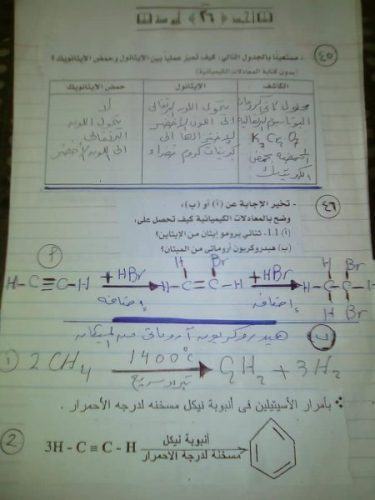 ٤٥
- مستعينا بالجدول التالي: كيف تميز عمليا بين الإيثانول وحمض الإيثانويك ؟
(بدون كتابة المعادلات الكيميائية)
الكاشف الإيثانول حمض الإيثانويك
محلول ثانى كرومات البوتاسيوم البرتقالية K2Cr2O7 المحمضة بحمض الكبريتيك
يتحول اللون البرتقالى الى اللون الأخضر
كبريتات كروم خضراء
لا يتحول اللون البرتقالى الى اللون الأخضر
٤٦
- تخير الإجابة عن (أ) أو (ب)،
وضح بالمعادلات الكيميائية كيف تحصل على:
(أ) 1،1 - ثنائي برومو إيثان من الإيثاين؟
(ب) هيدروكربون أروماتي من الميثان؟
أ
H-C≡C-H +HBr إضافة H-C=C-H H Br +HBr إضافة H-C-C-H H Br H Br
ب هيدروكربون أروماتى من الميثان
1 2CH4 1400°C تبريد سريع C2H2 + 3H2
بأمرار الأسيتيلين فى أنبوبة نيكل مسخنه لدرجه الأحمرار .
2 3H - C ≡ C - H أنبوبة نيكل مسخنة لدرجة الاحمرار